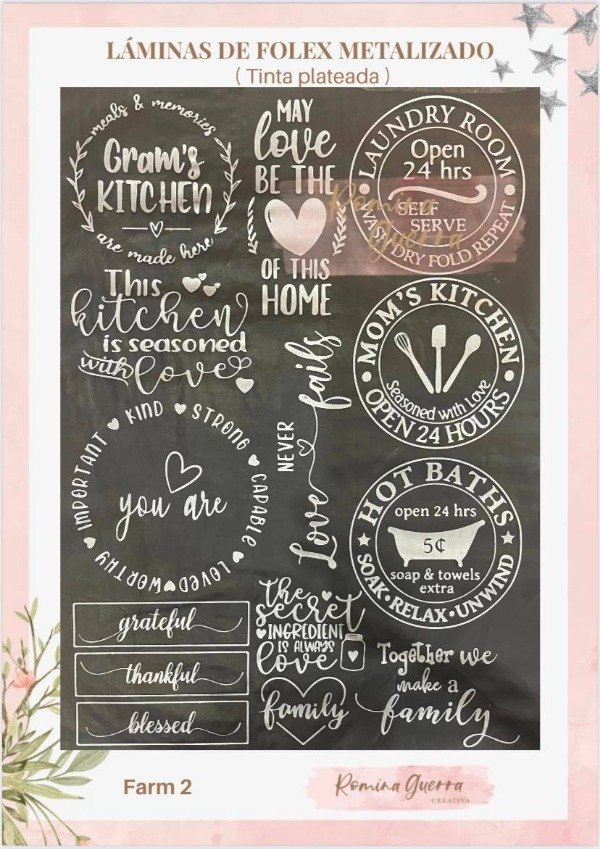 LÁMINAS DE FOLEX METALIZADO
( Tinta plateada )
meals & memories
Gram's
KITCHEN
are made here
MAY
love
BE THE
OF THIS
HOME
LAUNDRY ROOM
Open
24 hrs
SELF
SERVE
WASH DRY FOLD REPEAT
Romina
Guerra
This
kitchen
is seasoned
with love
MOM'S KITCHEN
Seasoned with Love
OPEN 24 HOURS
NEVER
Love fails
you are
IMPORTANT KIND STRONG CAPABLE LOVED WORTHY
HOT BATHS
open 24 hrs
5¢
soap & towels
extra
SOAK • RELAX • UNWIND
grateful
thankful
blessed
the
secret
INGREDIENT
IS ALWAYS
love
family
Together we
make a
family
Farm 2
Romina Guerra
CREATIVA